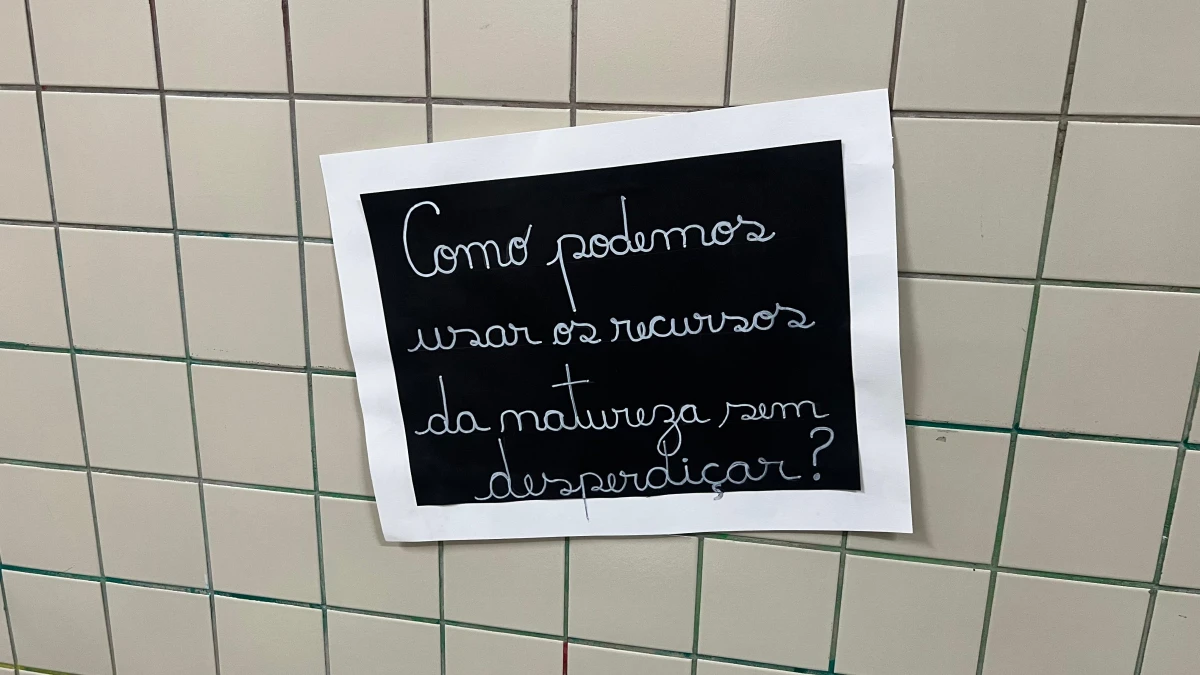 Como podemos
usar os recursos
da natureza sem
desperdiçar?